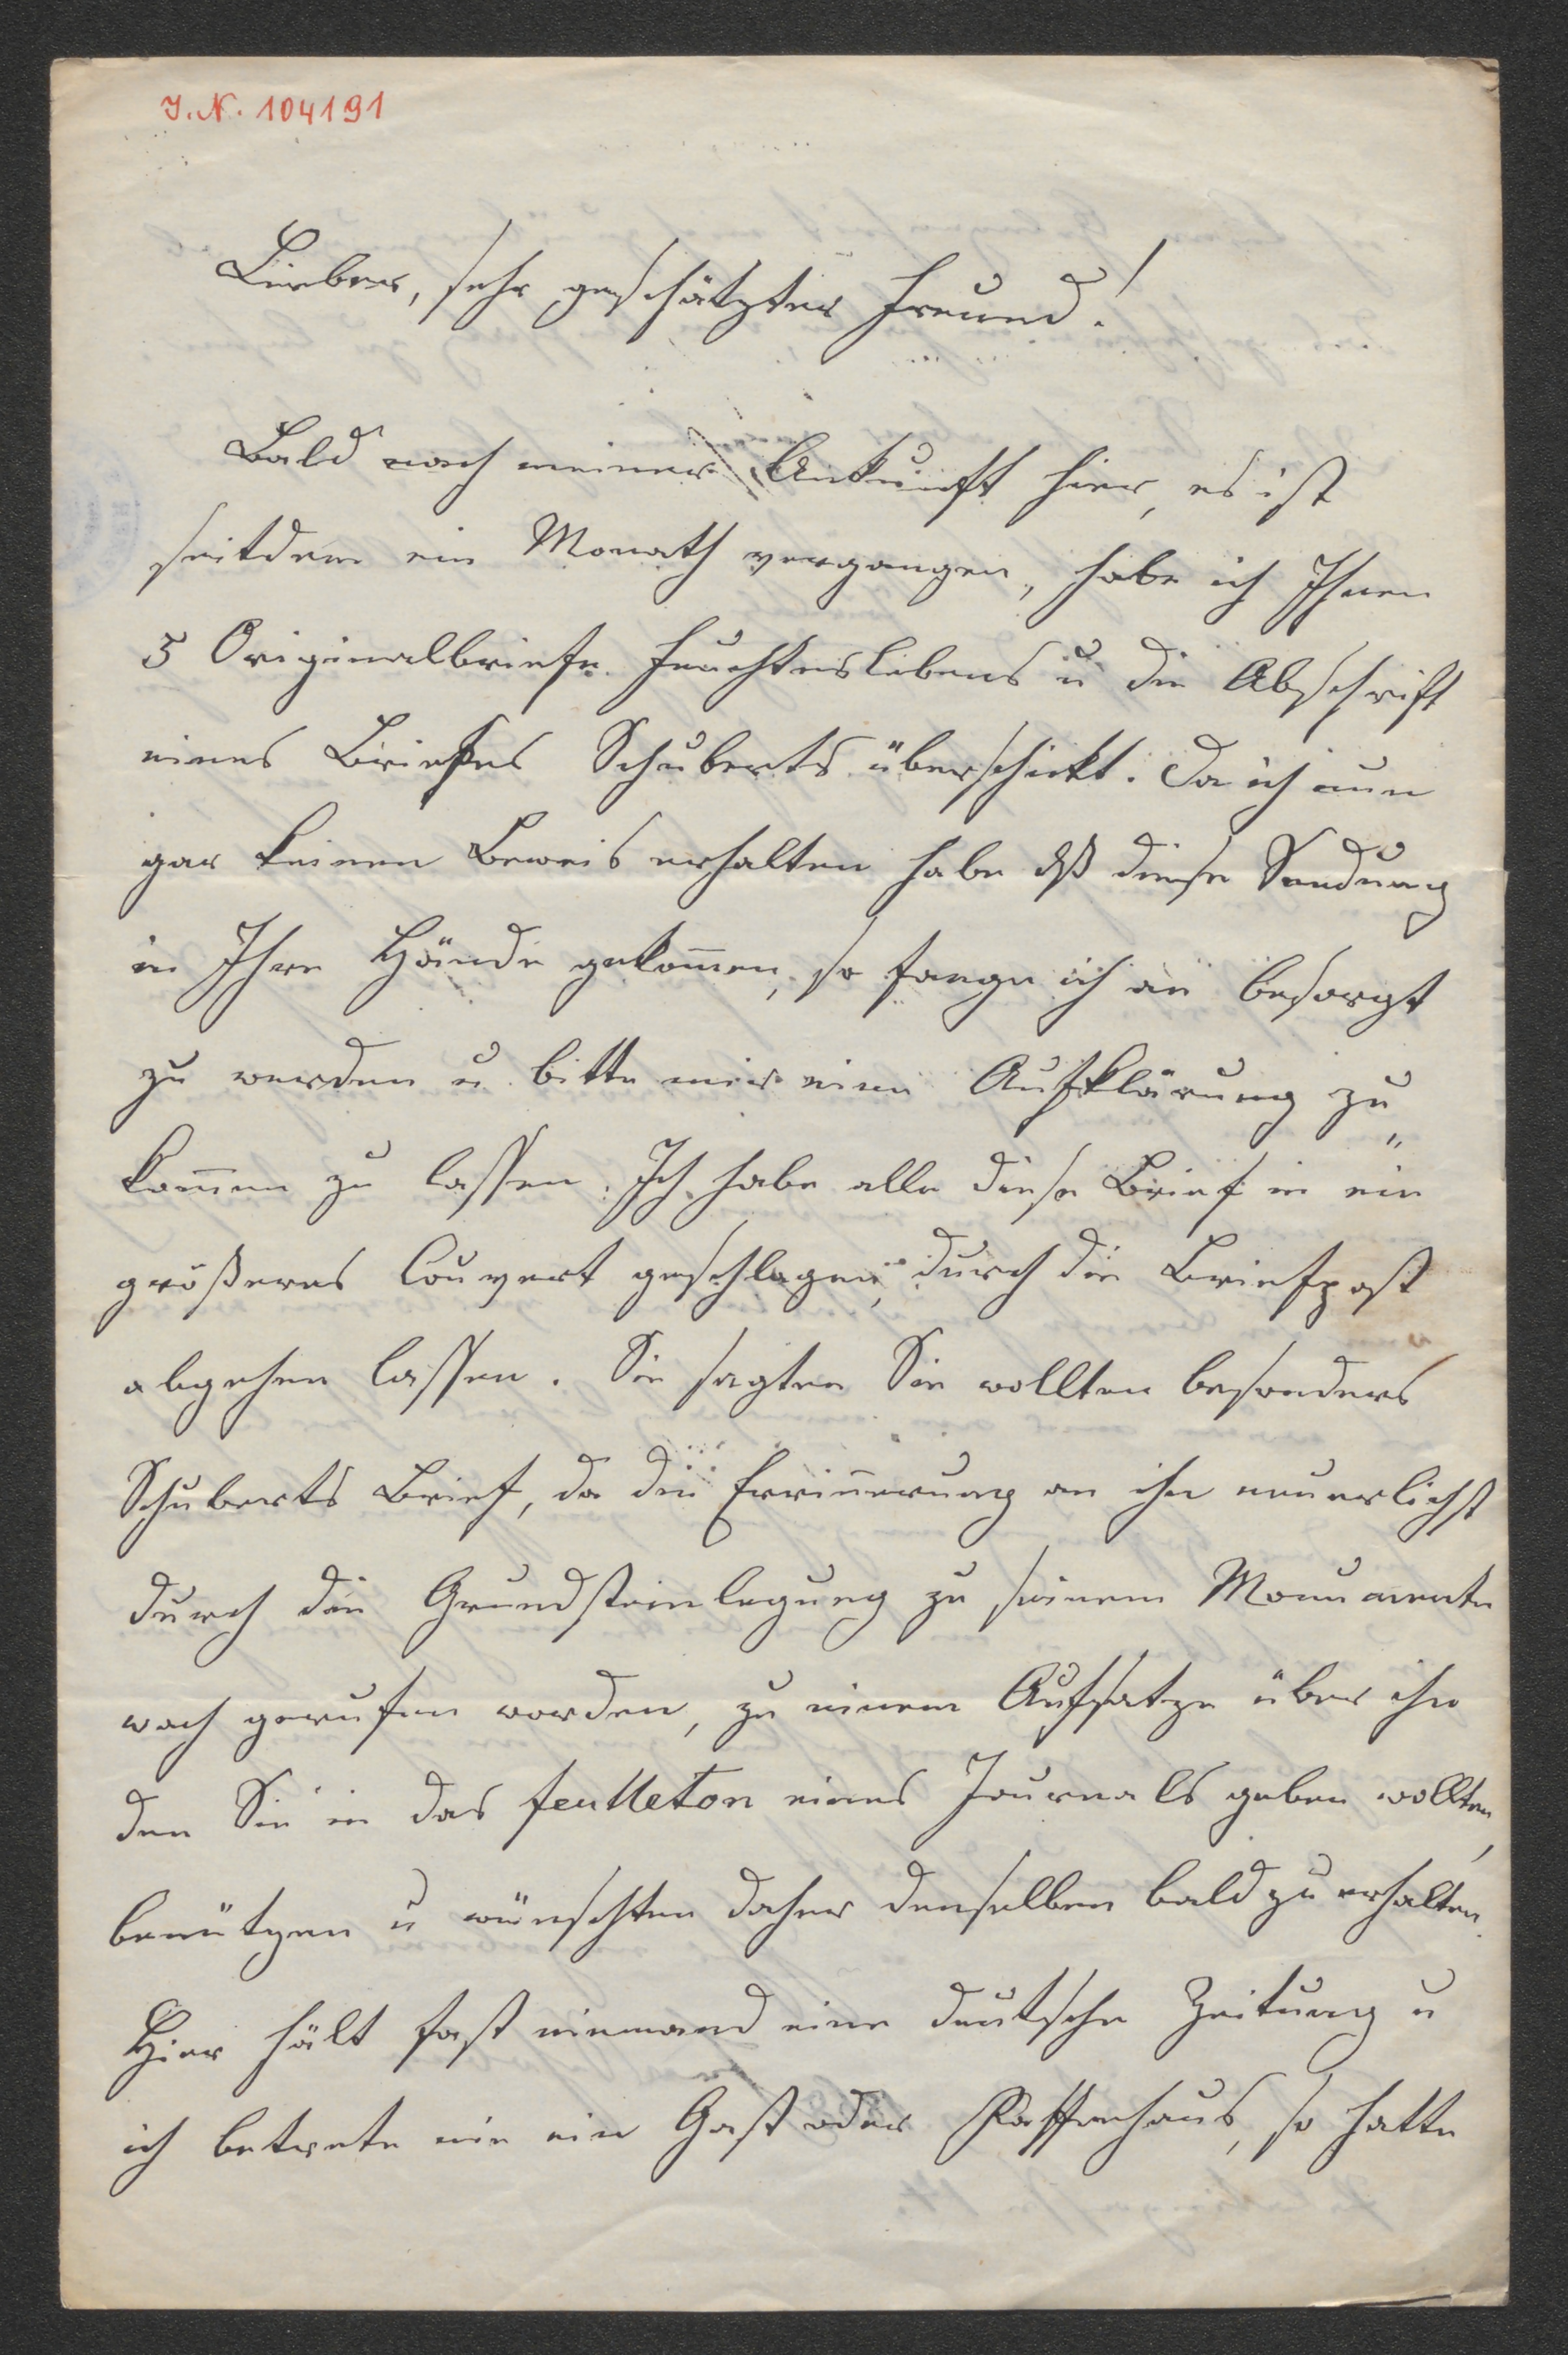 J. N. 104191
Lieber, sehr geschätzter Freund!
Bald nach meiner Ankunft hier, es ist
seitdem ein Monath vergangen, habe ich Ihnen
5 Originalbriefe Feuchterslebens u die Abschrift
eines Briefes Schuberts überschickt. Da ich nun
gar keinen Beweis erhalten habe dß diese Sendung
in Ihre Hände gekom̅en, so fange ich an besorgt
zu werden u bitte mir eine Aufklärung zu„
kom̅en zu lassen. Ich habe alle diese Brief in ein
größeres Couvert geschlagen, durch die Briefpost
abgehen lassen. Sie sagten Sie wollten besonders
Schuberts Brief, da die Errin̅erung an ihn neuerlichst
durch die Grundsteinlegung zu seinem Monumente
wach gerufen worden, zu einem Aufsatze über ihn
den Sie in das feulleton eines Journals geben wollten,
benützen u wünschten daher denselben bald zu erhalten.
Hier hält fast niemand eine deutsche Zeitung u
ich betrete nie ein Gast oder Kaffeehaus, so hatte